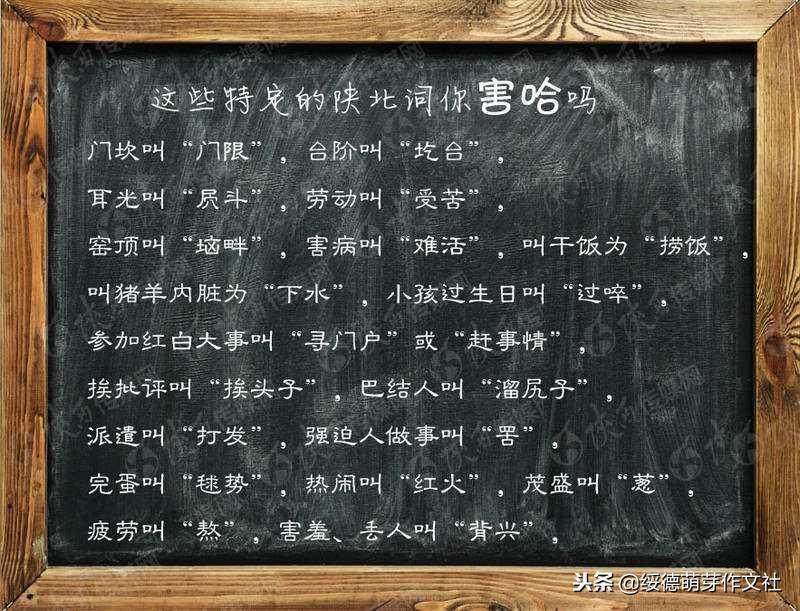 这些特定的陕北词你害哈吗
门坎叫“门限”，台阶叫“圪台”，
耳光叫“屃斗”，劳动叫“受苦”，
窑顶叫“垴畔”，害病叫“难活”，叫干饭为“捞饭”，
叫猪羊内脏为“下水”，小孩过生日叫“过啐”，
参加红白大事叫“寻门户”或“赶事情”，
挨批评叫“挨头子”，巴结人叫“溜尻子”，
派遣叫“打发”，强迫人做事叫“罟”，
完蛋叫“毬势”，热闹叫“红火”，茂盛叫“葱”，
疲劳叫“熬”，害羞、丢人叫“背兴”，
头条 @绥德萌芽作文社